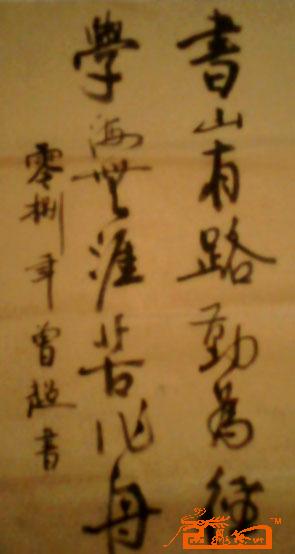 書山有路勤為徑
學海無涯苦作舟
零捌年曾超書